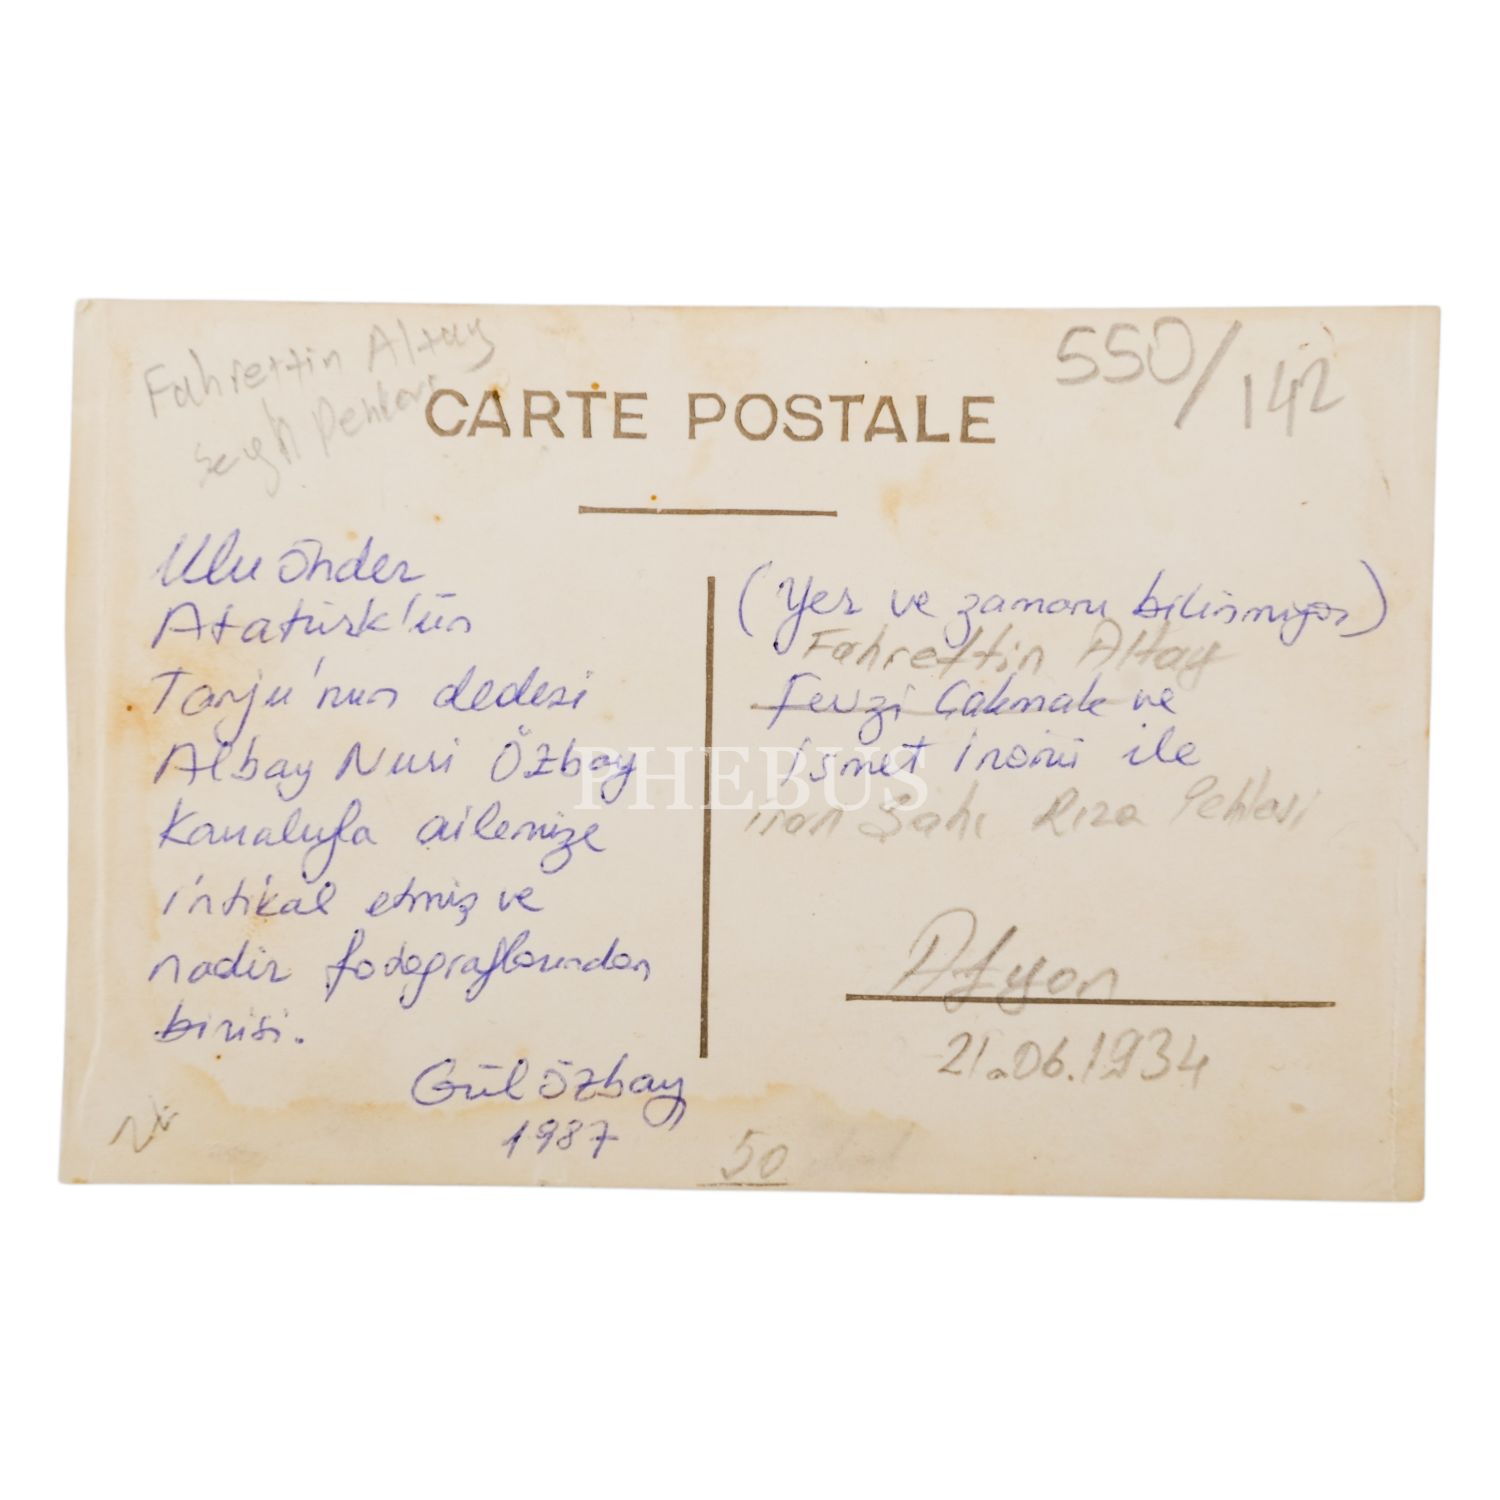 Fahrettin Altay
Pehlevi
550/142
CARTE POSTALE
Ulu önder
Atatürk'ün
Tanju'nun dedesi
Albay Nuri Özbay
Kanalıyla ailemize
intikal etmiş ve
nadir fotograflarından
birisi.
Gül Özbay
1987
(Yer ve zamanı bilinmiyor)
Fahrettin Altay
Fevzi Çakmak ve
İsmet İnönü ile
İran Şahı Rıza Pehlevi
Afyon
21.06.1934
50
PHEBUS